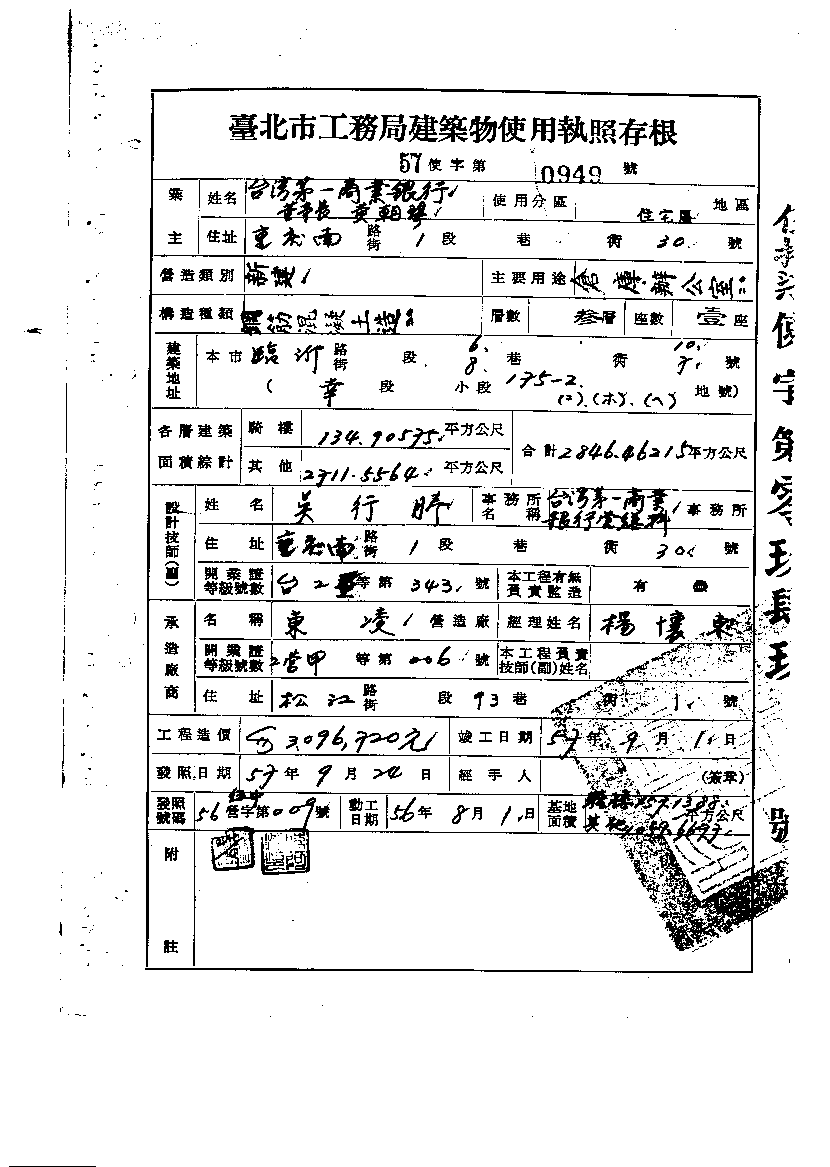 臺北市工務局建築物使用執照存根
57使字第 0949 號
業主 姓名 台湾第一商業銀行 董事長 黄朝琴 使用分區 住宅區 地區
住址 重慶南 路街 1 段 巷 衖 30 號
營造類別 新建 主要用途 倉庫辦公室
構造種類 鋼筋混凝土造 層數 叁層 座數 壹座
建築地址 本市 臨沂 路街 段 6. 8. 巷 衖 10. 7. 號
( 幸 段 小段 175-2 (ニ)、(ホ)、(ヘ) 地號)
各層建築面積綜計 騎樓 134.90575 平方公尺 合計 2846.46215 平方公尺
其他 2711.5564 平方公尺
設計技師(副) 姓名 吳行 事務所名稱 台湾第一商業銀行營繕科 事務所
住址 重慶南 路街 1 段 巷 衖 30 號
開業證等級號數 台工 等第 343 號 本工程有無負責監造 有
承造廠商 名稱 東凌 營造廠 經理姓名 楊懷
開業證等級號數 營甲 等第 006 號 本工程負責技師(副)姓名
住址 松江 路街 段 93 巷 衖 1. 號
工程造價 3,096,720元 竣工日期 57年 9月 1日
發照日期 57年 9月 24日 經手人 (簽章)
發照號碼 56 營字第009號 動工日期 56年 8月 1日 基地面積 騎樓 157.1388 平方公尺
其他 4059.6693
附註
使字第零玖長玖 號